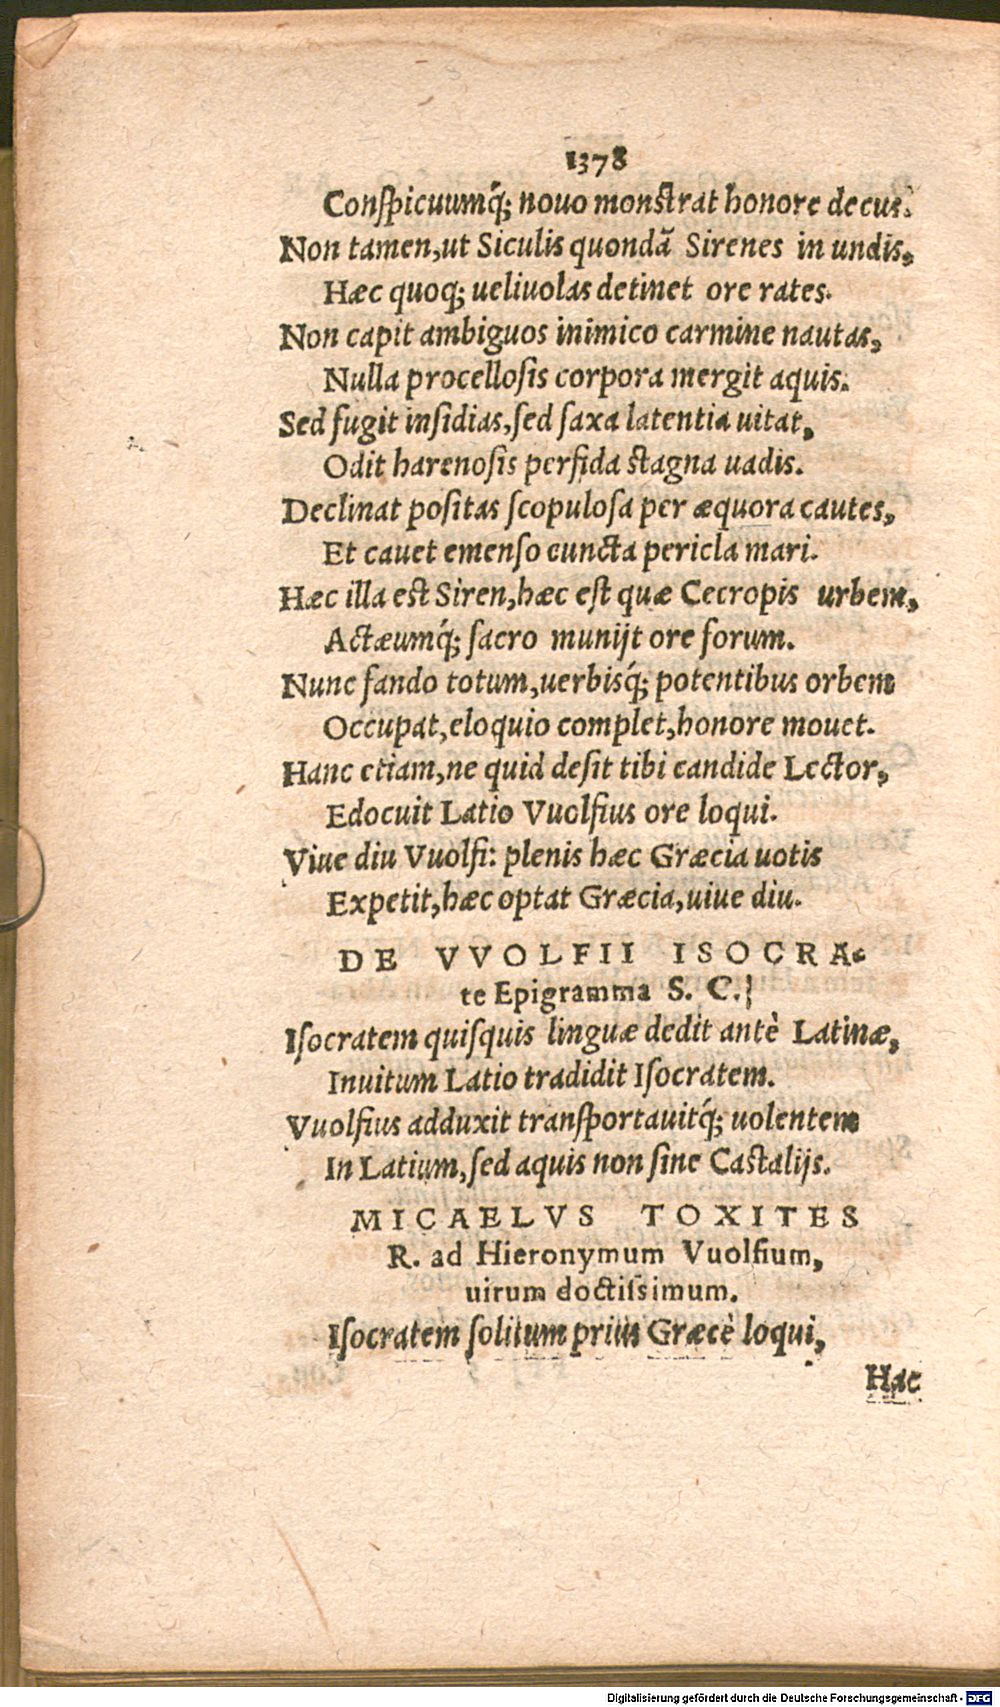 1378
Conſpicuumq́; nouo monſtrat honore decus.
Non tamen, ut Siculis quondã Sirenes in undis,
Hæc quoq; ueliuolas detinet ore rates.
Non capit ambiguos inimico carmine nautas,
Nulla procelloſis corpora mergit aquis.
Sed fugit inſidias, ſed ſaxa latentia uitat,
Odit harenoſis perfida ſtagna uadis.
Declinat poſitas ſcopuloſa per æquora cautes,
Et cauet emenſo cuncta pericla mari.
Hæc illa eſt Siren, hæc eſt quæ Cecropis urbem,
Actæumq́; ſacro munijt ore forum.
Nunc fando totum, uerbisq́; potentibus orbem
Occupat, eloquio complet, honore mouet.
Hanc etiam, ne quid deſit tibi candide Lector,
Edocuit Latio Vuolfius ore loqui.
Viue diu Vuolfi: plenis hæc Græcia uotis
Expetit, hæc optat Græcia, uiue diu.
DE VVOLFII ISOCRA-
te Epigramma S. C.
Iſocratem quiſquis linguæ dedit antè Latinæ,
Inuitum Latio tradidit Iſocratem.
Vuolfius adduxit tranſportauitq́; uolentem
In Latium, ſed aquis non ſine Caſtalijs.
MICAELVS TOXITES
R. ad Hieronymum Vuolfium,
uirum doctiſsimum.
Iſocratem ſolitum prius Græcè loqui,
Hac
Digitalisierung gefördert durch die Deutsche Forschungsgemeinschaft - DFG